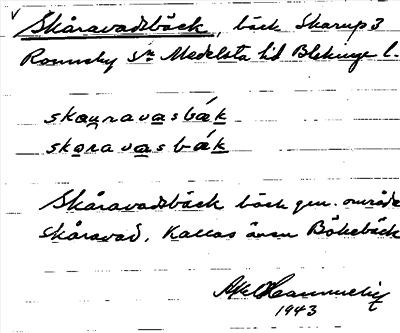 Skåravadsbäck, bäck Skarup 3
Ronneby sn Medelsta hd Blekinge l.
skauravasbǽk
skåravasbǽk
Skåravadsbäck bäck gm. område
skåravad. Kallas även Bökebäck
Axel
1943